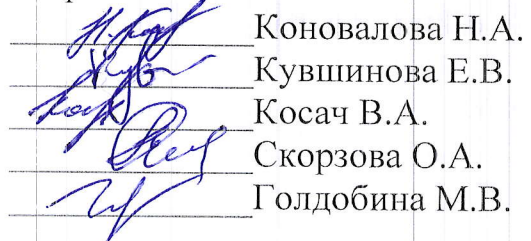 Коновалова Н.А.
Кувшинова Е.В.
Косач В.А.
Скорзова О.А.
Голдобина М.В.